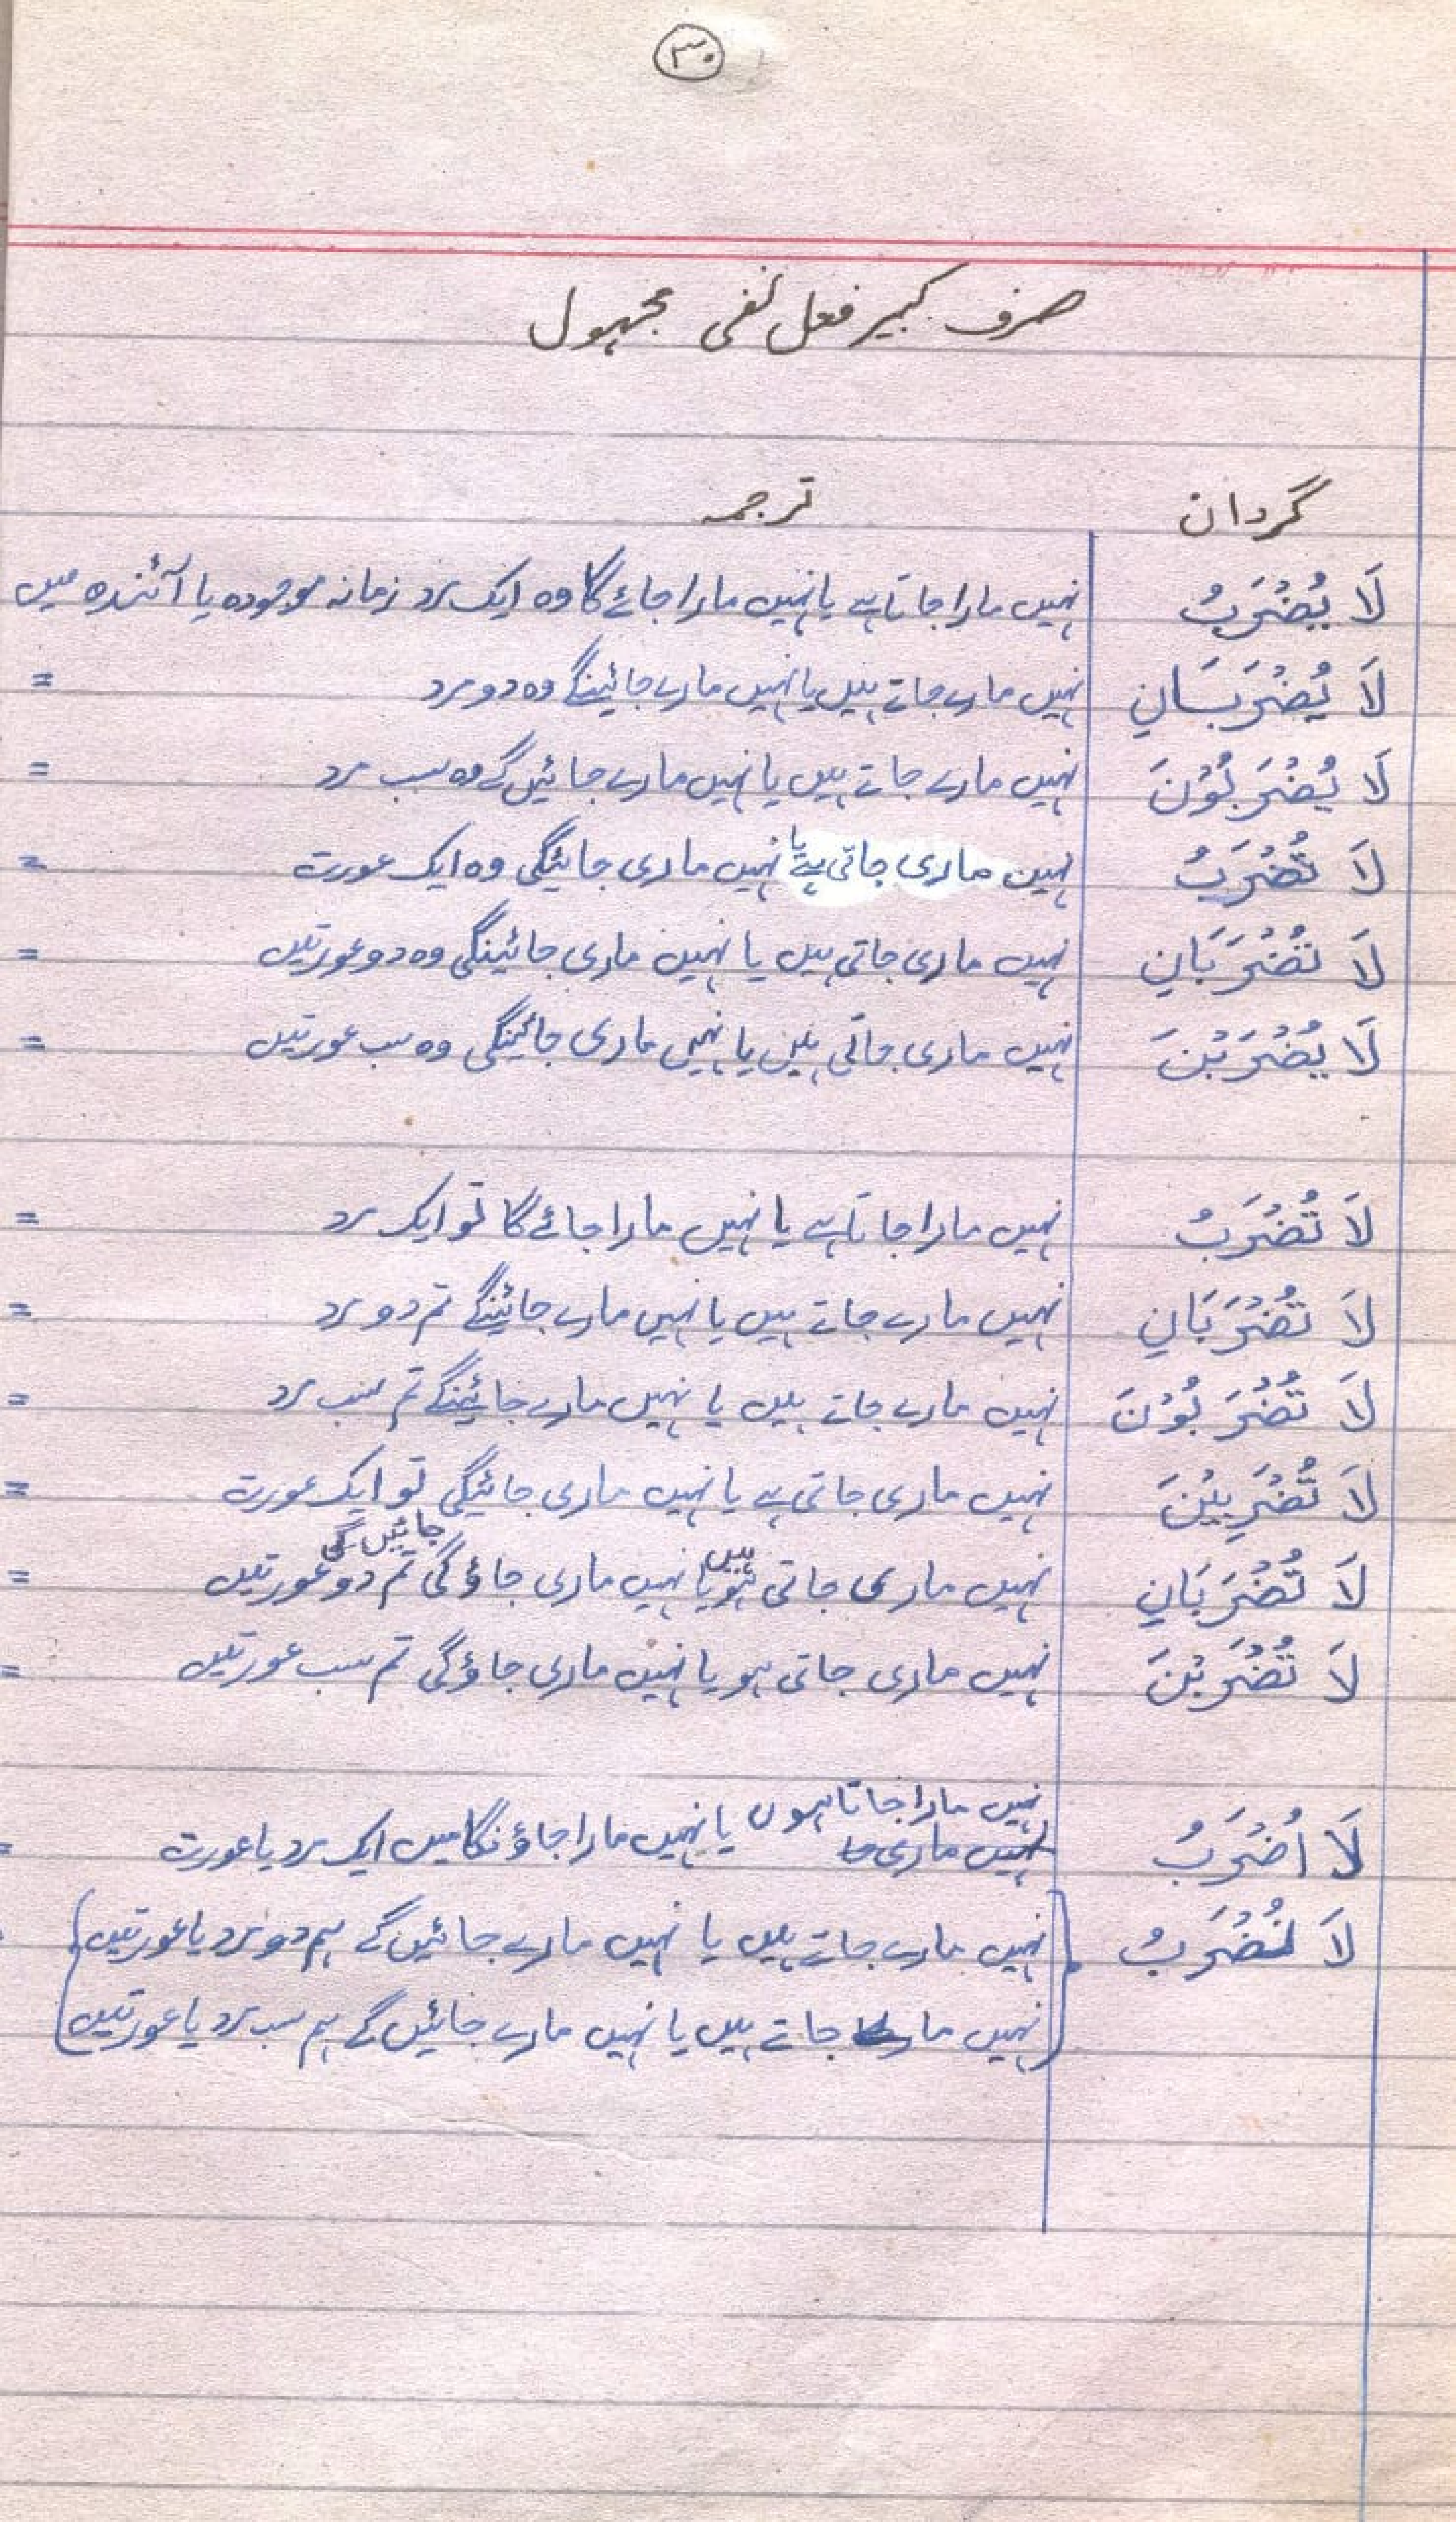 ۳۰
صرف کبیر فعل نفی مجہول
گردان ترجمہ
لَا یُضْرَبُ نہیں مارا جاتا ہے یا نہیں مارا جائے گا وہ ایک مرد زمانہ موجودہ یا آئندہ میں
لَا یُضْرَبَانِ نہیں مارے جاتے ہیں یا نہیں مارے جائینگے وہ دو مرد =
لَا یُضْرَبُوْنَ نہیں مارے جاتے ہیں یا نہیں مارے جائیں گے وہ سب مرد =
لَا تُضْرَبُ نہیں ماری جاتی ہے یا نہیں ماری جائیگی وہ ایک عورت =
لَا تُضْرَبَانِ نہیں ماری جاتی ہیں یا نہیں ماری جائینگی وہ دو عورتیں =
لَا یُضْرَبْنَ نہیں ماری جاتی ہیں یا نہیں ماری جائینگی وہ سب عورتیں =
لَا تُضْرَبُ نہیں مارا جاتا ہے یا نہیں مارا جائے گا تو ایک مرد =
لَا تُضْرَبَانِ نہیں مارے جاتے ہیں یا نہیں مارے جائینگے تم دو مرد =
لَا تُضْرَبُوْنَ نہیں مارے جاتے ہیں یا نہیں مارے جائینگے تم سب مرد =
لَا تُضْرَبِیْنَ نہیں ماری جاتی ہے یا نہیں ماری جائیگی تو ایک عورت =
ہیں جائیں گی
لَا تُضْرَبَانِ نہیں ماری جاتی ہو یا نہیں ماری جاؤ گی تم دو عورتیں =
لَا تُضْرَبْنَ نہیں ماری جاتی ہو یا نہیں ماری جاؤ گی تم سب عورتیں =
نہیں مارا جاتا ہوں
لَا اُضْرَبُ نہیں ماری جا یا نہیں مارا جاؤنگا میں ایک مرد یا عورت =
لَا نُضْرَبُ { نہیں مارے جاتے ہیں یا نہیں مارے جائیں گے ہم دو مرد یا عورتیں }
نہیں مارے جاتے ہیں یا نہیں مارے جائیں گے ہم سب مرد یا عورتیں